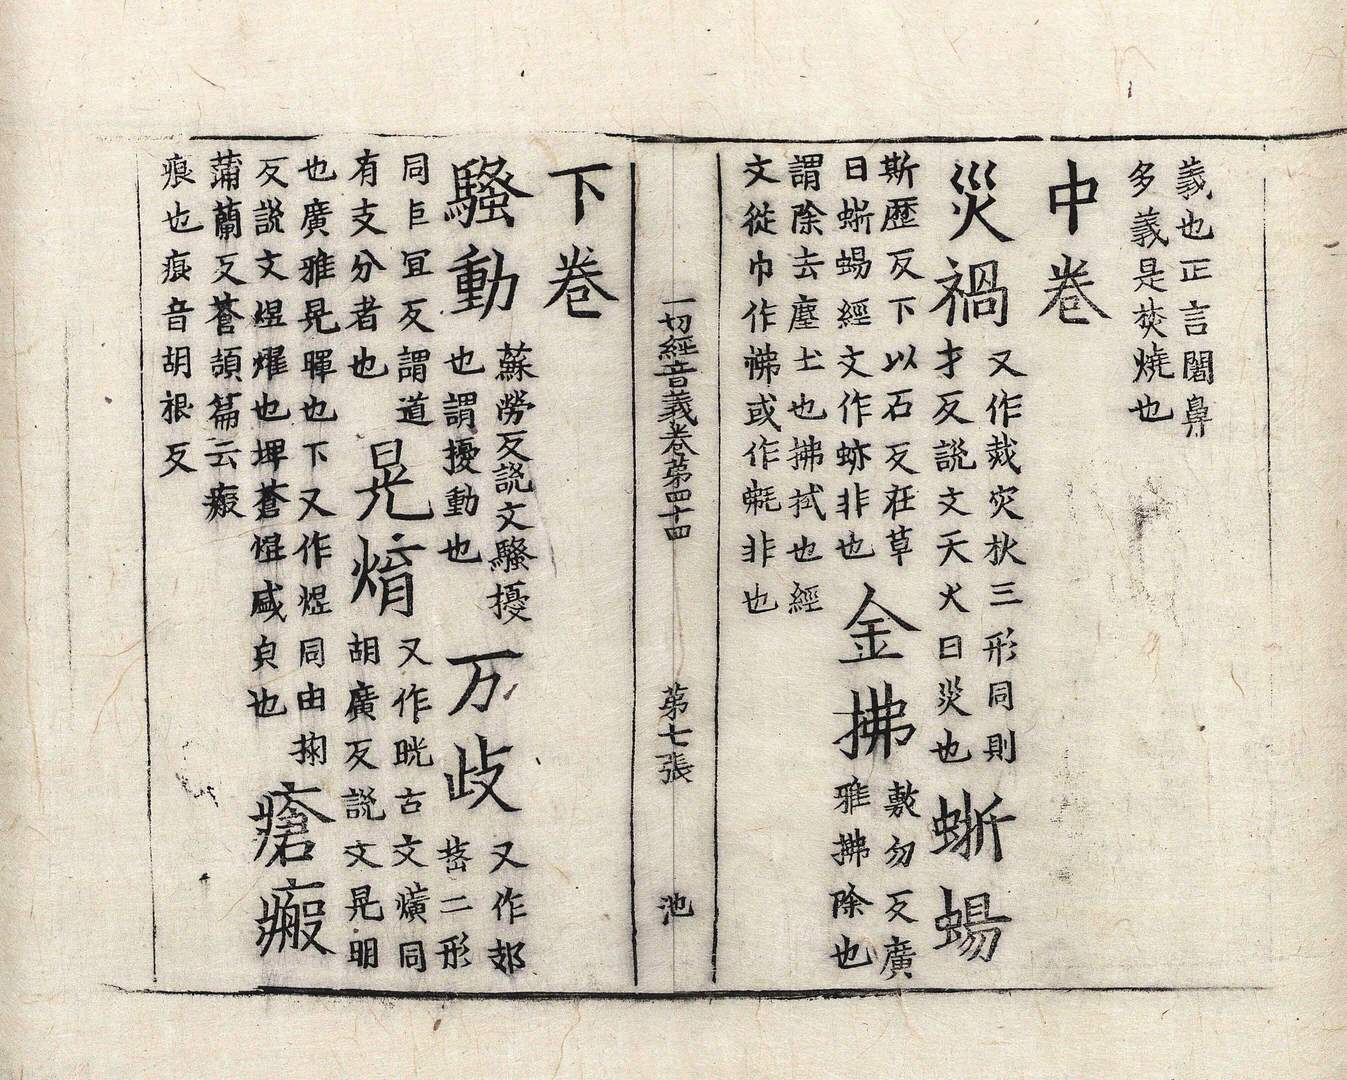 義也正言闍鼻
多義是焚燒也
中卷
災禍
又作烖灾三形同則
才反說文天火曰災也
蜥蜴
斯歷反下以石反在草
曰蜥蜴經文作非也
金拂
敷勿反廣
雅拂除也
謂除去塵土也拂拭也經
文從巾作或作非也
一切經音義卷第四十四 第七張 池
下卷
騷動
蘇勞反說文騷擾
也謂擾動也
万歧
又作郊
二形
同巨冝反謂道
有支分者也
晃焴
又作晄古文爌同
胡廣反說文晃明
也廣雅晃暉也下又作煜同由掬
反說文煜燿也埤蒼煜盛皃也
瘡瘢
蒲蘭反蒼頡篇云瘢
痕也痕音胡根反